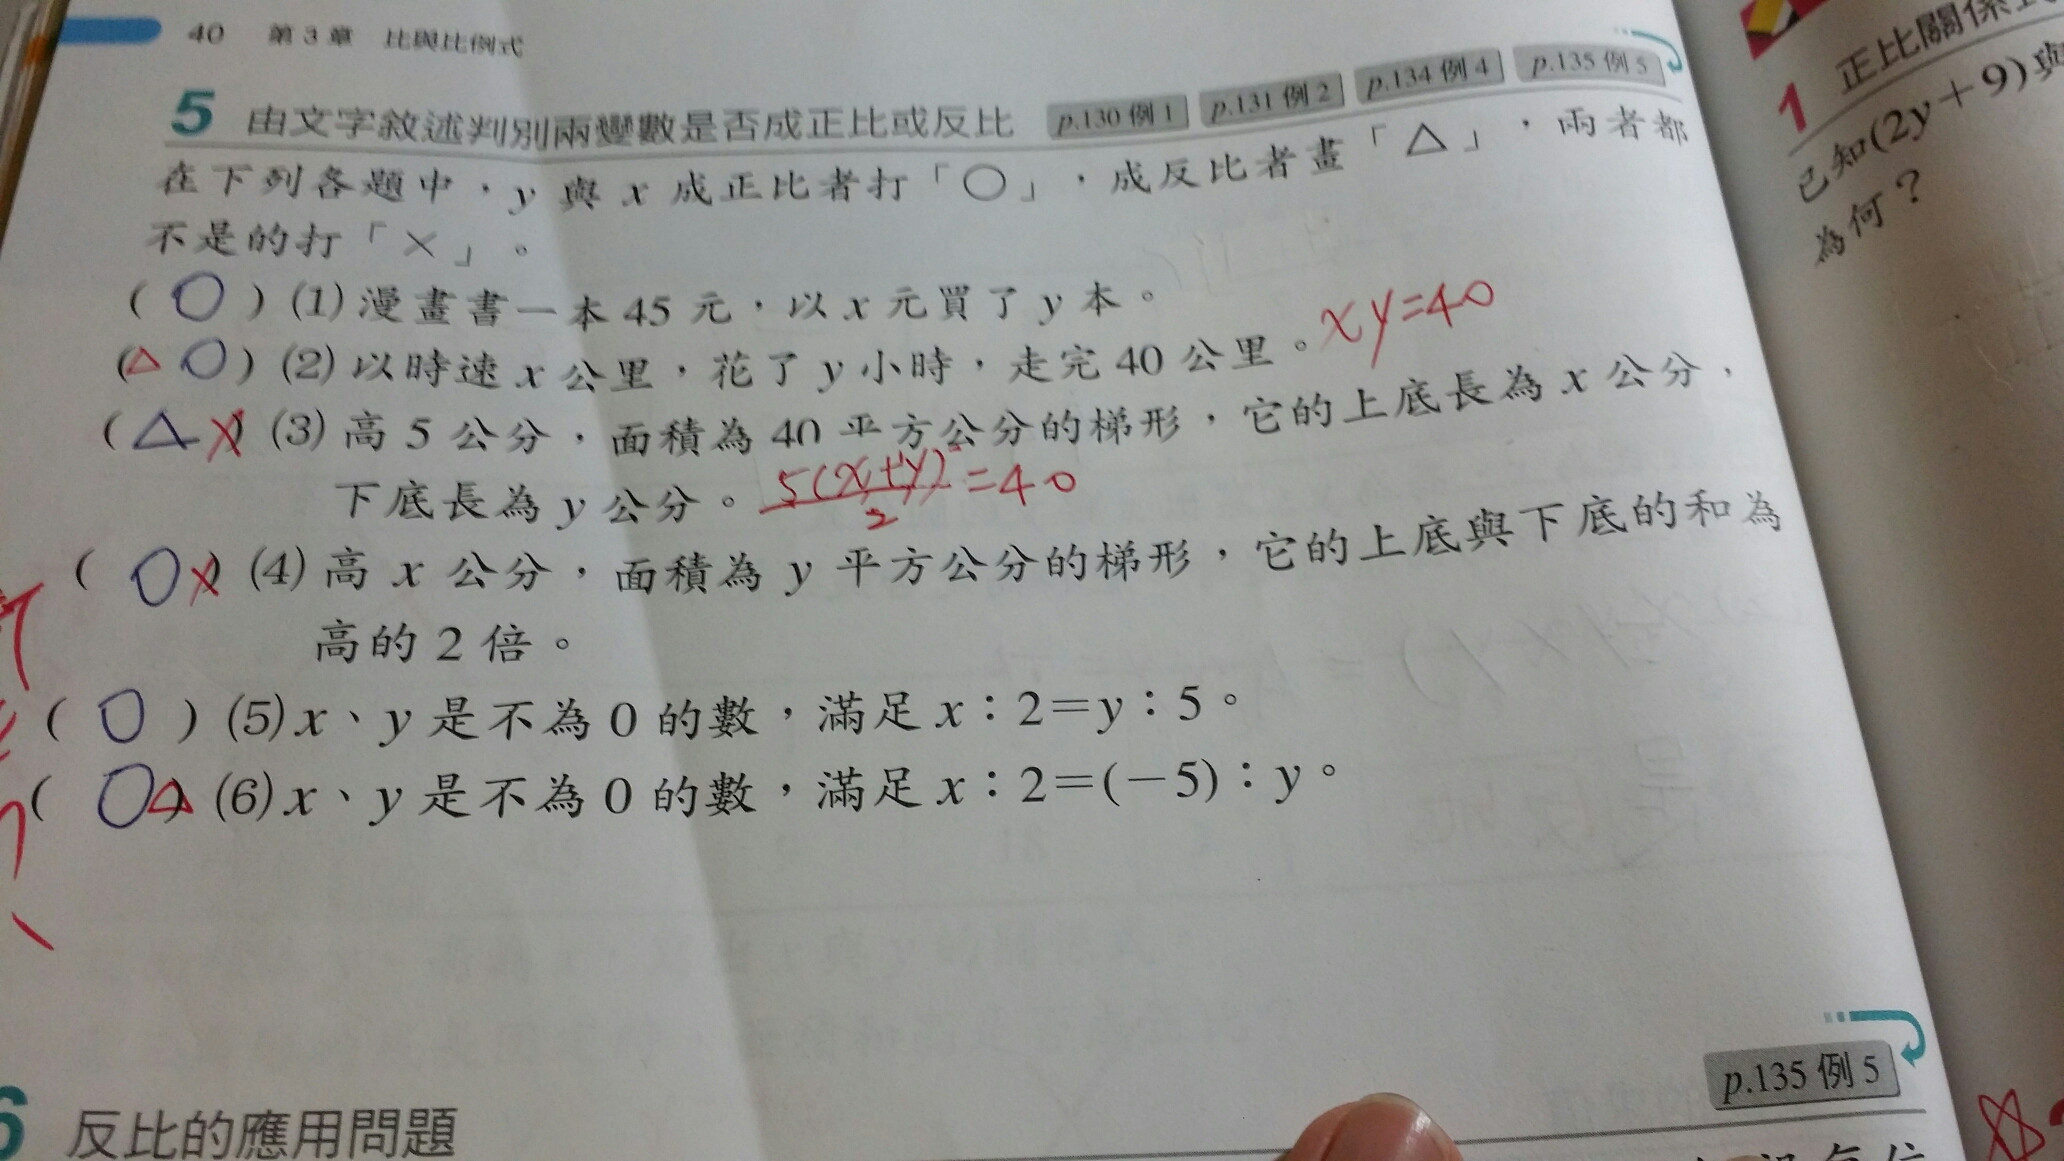 40 第3章 比與比例式
5 由文字敘述判別兩變數是否成正比或反比 p.130 例 1 p.131 例 2 p.134 例 4 p.135 例 5
在下列各題中，y 與 x 成正比者打「○」，成反比者畫「△」，兩者都
不是的打「×」。
( ○ ) (1) 漫畫書一本 45 元，以 x 元買了 y 本。
(△ ○ ) (2) 以時速 x 公里，花了 y 小時，走完 40 公里。 xy=40
( △ X) (3) 高 5 公分，面積為 40 平方公分的梯形，它的上底長為 x 公分，
下底長為 y 公分。 5(x+y)/2 =40
( ○X) (4) 高 x 公分，面積為 y 平方公分的梯形，它的上底與下底的和為
高的 2 倍。
( ○ ) (5) x、y 是不為 0 的數，滿足 x：2＝y：5。
( ○△) (6) x、y 是不為 0 的數，滿足 x：2＝(－5)：y。
p.135 例 5
6 反比的應用問題
正比關係式
1
已知(2y＋9)與
為何？